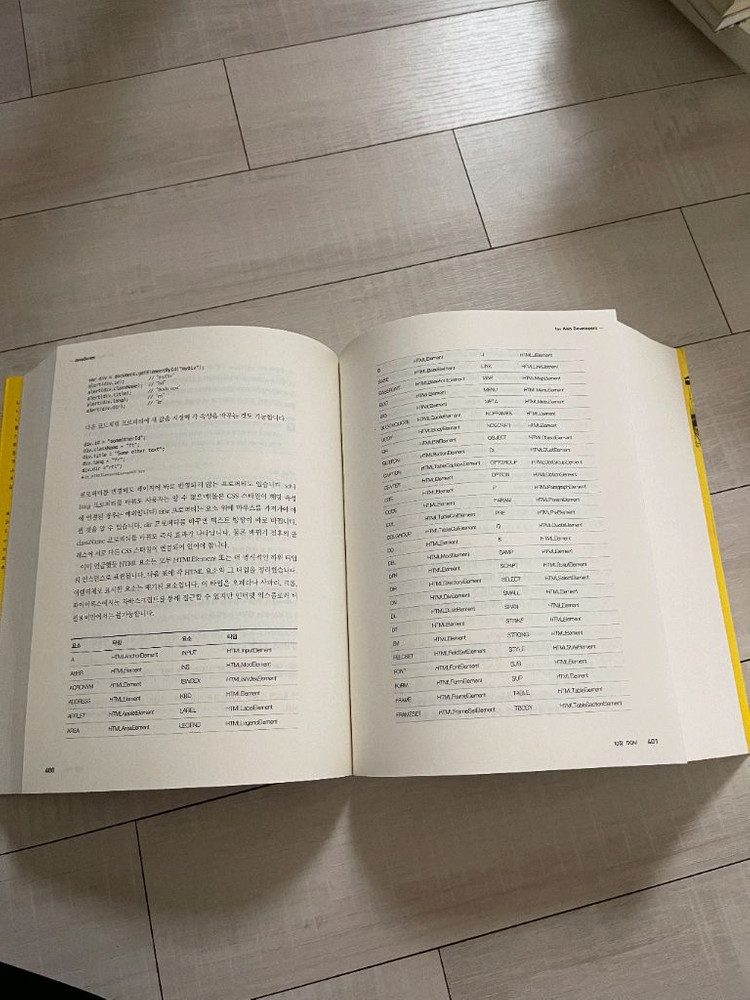 JavaScript
var div = document.getElementById("myDiv");
alert(div.id); // "myDiv"
alert(div.className); // "bd"
alert(div.title); // "Body text"
alert(div.lang); // "en"
alert(div.dir);
다음 코드처럼 프로퍼티에 새 값을 지정해 각 속성을 바꾸는 것도 가능합니다.
div.id = "someOtherId";
div.className = "ft";
div.title = "Some other text";
div.lang = "fr";
div.dir = "rtl";
프로퍼티를 변경해도 페이지에 바로 반영되지 않는 프로퍼티도 있습니다. id나
lang 프로퍼티를 바꿔도 사용자는 알 수 없으며(물론 CSS 스타일이 해당 속성
에 연결된 경우는 예외입니다) title 프로퍼티는 요소 위에 마우스를 가져가야 변
한 것을 알 수 있습니다. dir 프로퍼티를 바꾸면 텍스트 방향이 바로 바뀝니다.
className 프로퍼티를 바꿔도 즉시 효과가 나타납니다. 물론 바뀌기 전후의 클
래스에 서로 다른 CSS 스타일이 연결되어 있어야 합니다.
이미 언급했듯 HTML 요소는 모두 HTMLElement 또는 더 명시적인 하위 타입
의 인스턴스로 표현됩니다. 다음 표에 각 HTML 요소와 그 타입을 정리했습니다.
요소 타입 요소 타입
A HTMLAnchorElement INPUT HTMLInputElement
ABBR HTMLElement INS HTMLModElement
ACRONYM HTMLElement ISINDEX HTMLIsIndexElement
ADDRESS HTMLElement KBD HTMLElement
APPLET HTMLAppletElement LABEL HTMLLabelElement
AREA HTMLAreaElement LEGEND HTMLLegendElement
400
for Web Developers
B HTMLElement LI HTMLLIElement
BASE HTMLBaseElement LINK HTMLLinkElement
BASEFONT HTMLBaseFontElement MAP HTMLMapElement
BDO HTMLElement MENU HTMLMenuElement
BIG HTMLElement META HTMLMetaElement
BLOCKQUOTE HTMLQuoteElement NOFRAMES HTMLElement
BODY HTMLBodyElement NOSCRIPT HTMLElement
BR HTMLBRElement OBJECT HTMLObjectElement
BUTTON HTMLButtonElement OL HTMLOListElement
CAPTION HTMLTableCaptionElement OPTGROUP HTMLOptGroupElement
CENTER HTMLElement OPTION HTMLOptionElement
CITE HTMLElement P HTMLParagraphElement
CODE HTMLElement PARAM HTMLParamElement
COL HTMLTableColElement PRE HTMLPreElement
COLGROUP HTMLTableColElement Q HTMLQuoteElement
DD HTMLElement S HTMLElement
DEL HTMLModElement SAMP HTMLElement
DFN HTMLElement SCRIPT HTMLScriptElement
DIR HTMLDirectoryElement SELECT HTMLSelectElement
DIV HTMLDivElement SMALL HTMLElement
DL HTMLDListElement SPAN HTMLElement
DT HTMLElement STRIKE HTMLElement
EM HTMLElement STRONG HTMLElement
FIELDSET HTMLFieldSetElement STYLE HTMLStyleElement
FONT HTMLFontElement SUB HTMLElement
FORM HTMLFormElement SUP HTMLElement
FRAME HTMLFrameElement TABLE HTMLTableElement
FRAMESET HTMLFrameSetElement TBODY HTMLTableSectionElement
10장 DOM 401